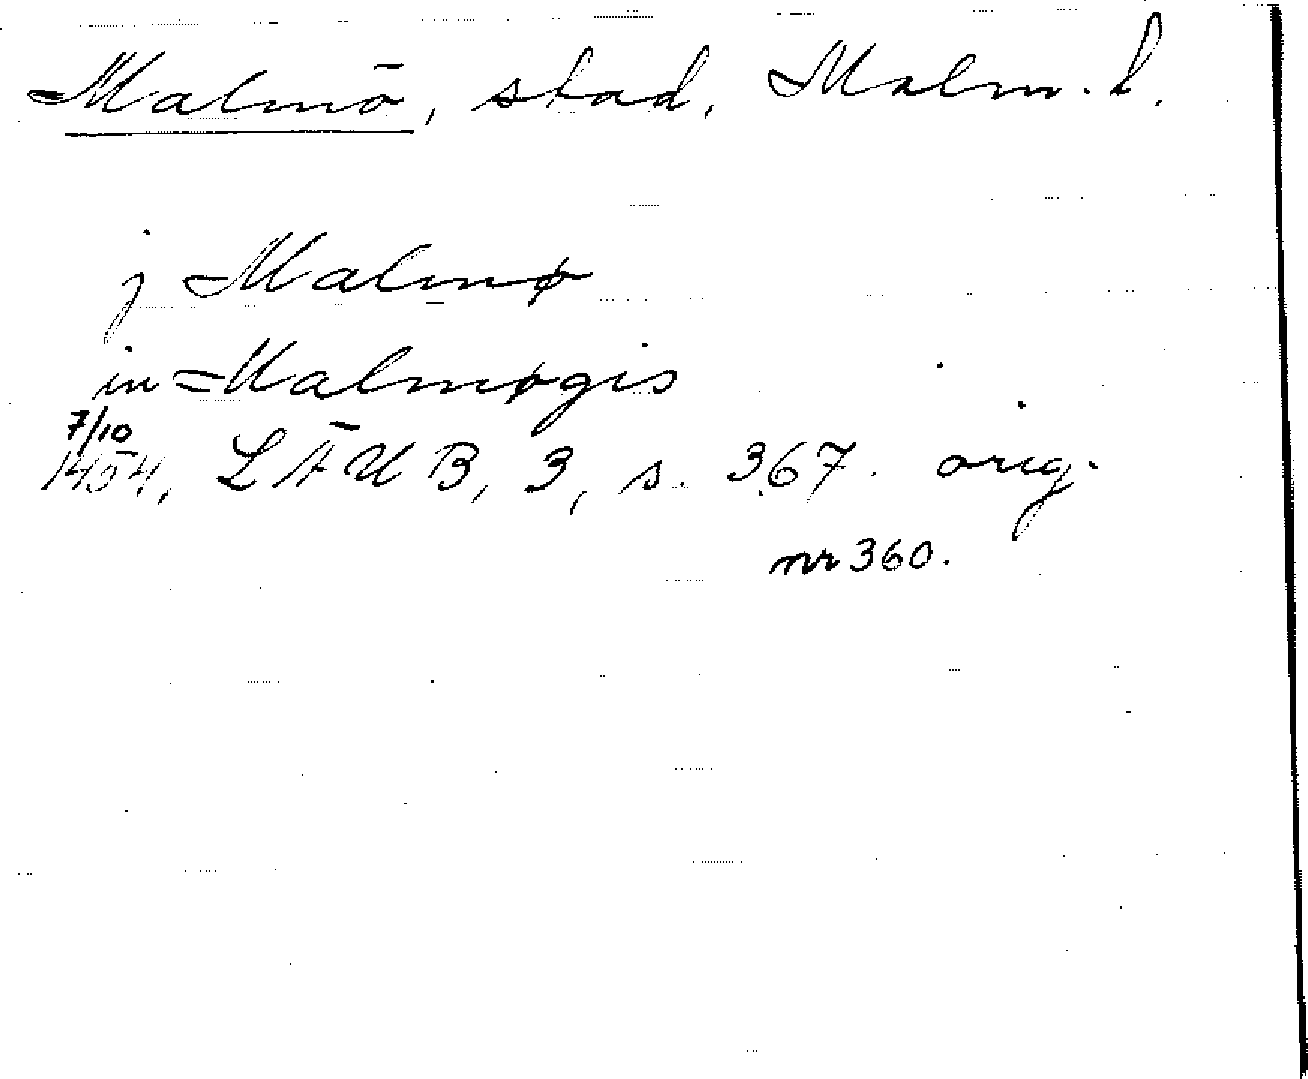 Malmö, stad, Malm. l.
j Malmø
in Malmøgis
7/10
1454, LÄUB, 3, s. 367. orig.
nr 360.